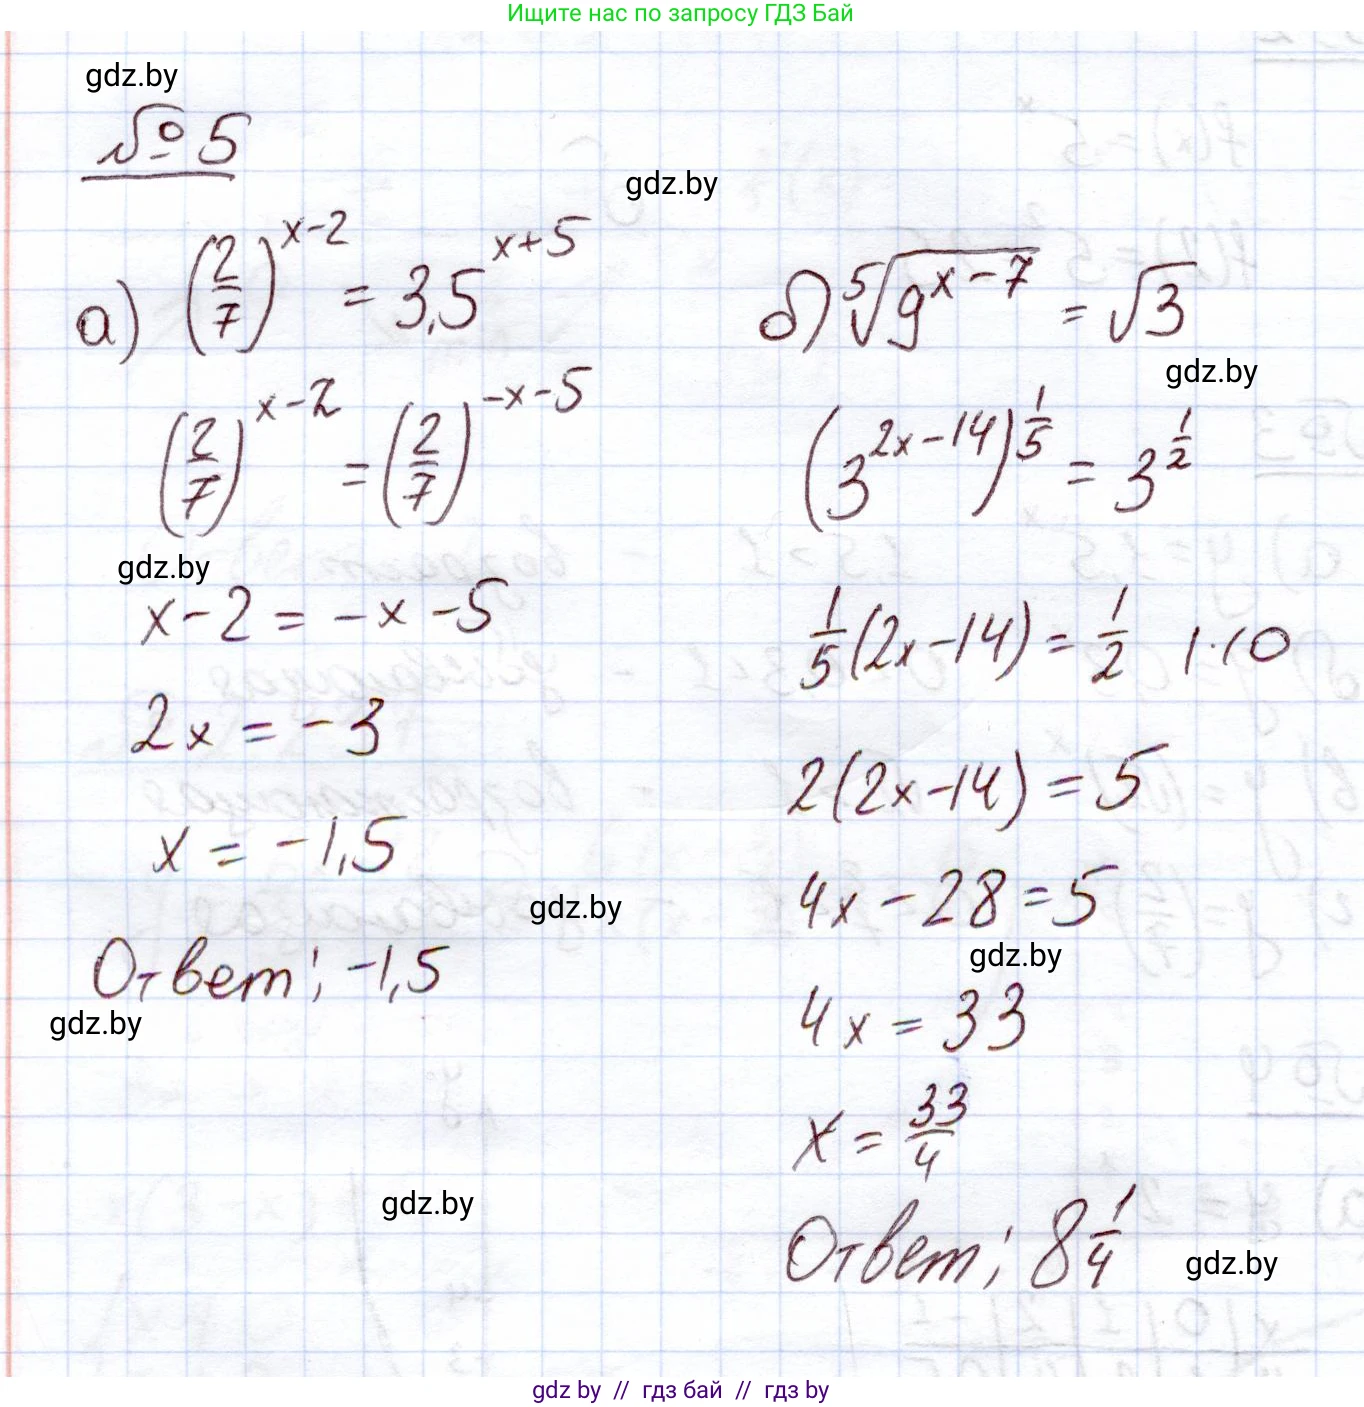 Ищите нас по запросу ГДЗ Бай
gdz.by
№ 5
gdz.by
а) (2/7)^(x-2) = 3,5^(x+5)
(2/7)^(x-2) = (2/7)^(-x-5)
gdz.by
x-2 = -x-5
2x = -3
x = -1,5
gdz.by
Ответ: -1,5
gdz.by
gdz.by
б) ⁵√(9^(x-7)) = √3
gdz.by
(3^(2x-14))^(1/5) = 3^(1/2)
1/5(2x-14) = 1/2 |·10
2(2x-14) = 5
4x-28=5
gdz.by
4x = 33
x = 33/4
Ответ: 8 1/4
gdz.by
gdz by // гдз бай // гдз by